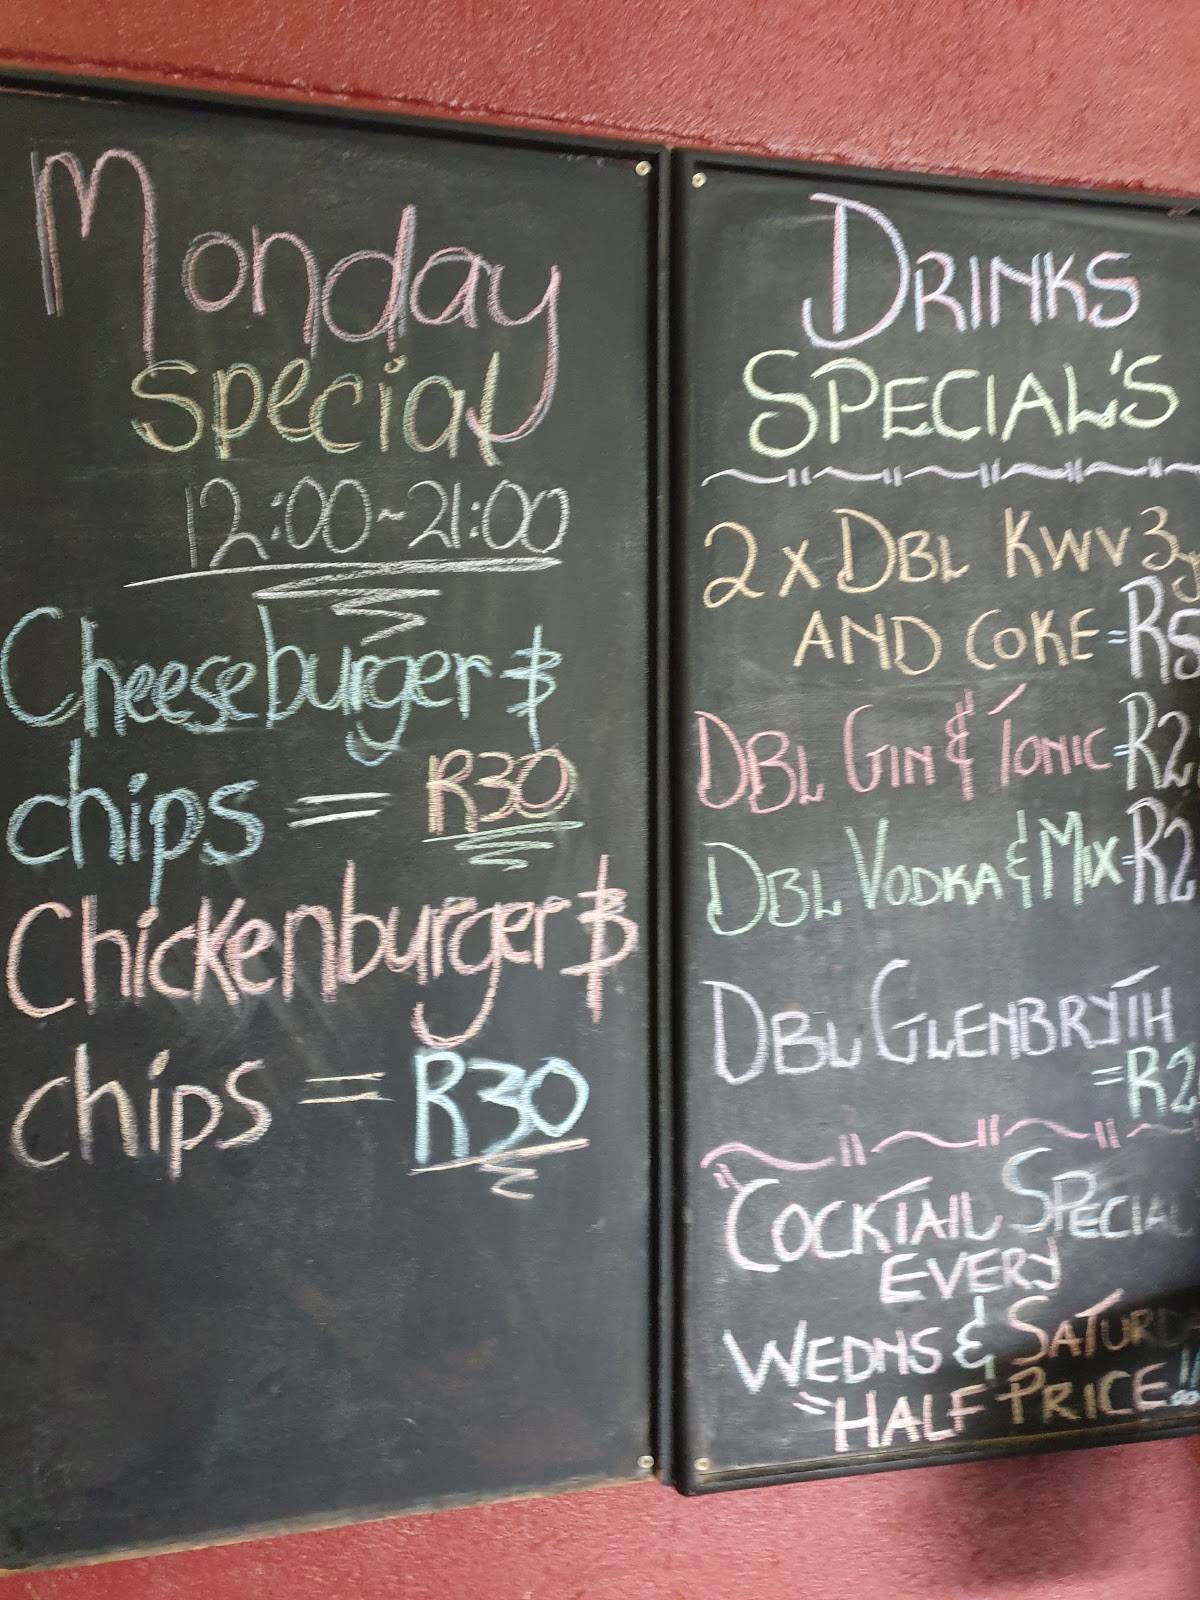 Monday
special
12:00~21:00
Cheeseburger &
chips = R30
Chickenburger &
chips = R30
DRINKS
SPECIAL'S
2 x DBL KWV 3y
AND COKE =R5
DBL GIN & TONIC =R2
DBL VODKA & MIX =R2
DBL GLENBRYTH
=R2
"COCKTAIL SPECIAL
EVERY
WEDNS & SATURDA
"HALF PRICE!!